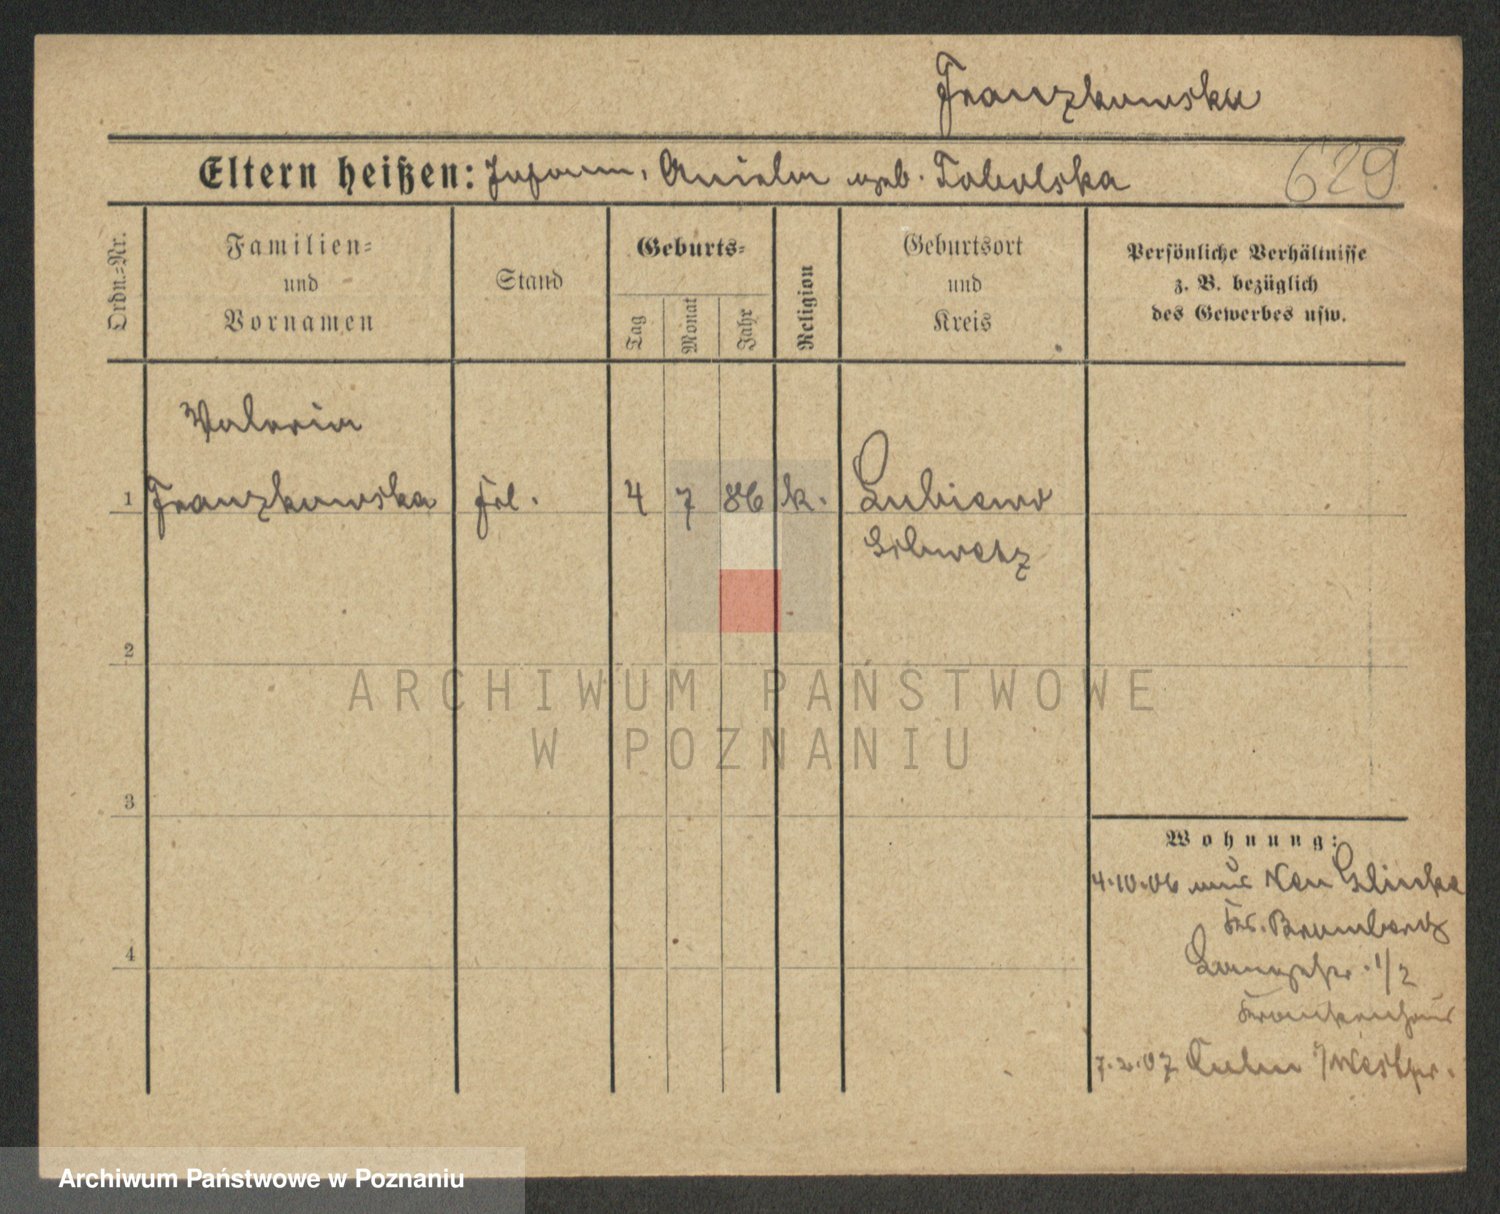 Franzkowska
Eltern heißen: Johann, Aniela geb. Tobolska
629
Ordn.=Nr.
Familien=
und
Vornamen
Stand
Geburts=
Tag
Monat
Jahr
Religion
Geburtsort
und
Kreis
Persönliche Verhältnisse
z. B. bezüglich
des Gewerbes usw.
Valeria
1 Franzkowska Frl. 4 7 86 k. Lubiewo
Schwetz
2
3
4
Wohnung:
4.10.06 aus Neu Glinke
Kr. Bromberg
Langestr. 1/2
Krankenhaus
7.2.07 Culm /Westpr.
ARCHIWUM PAŃSTWOWE
W POZNANIU
Archiwum Państwowe w Poznaniu